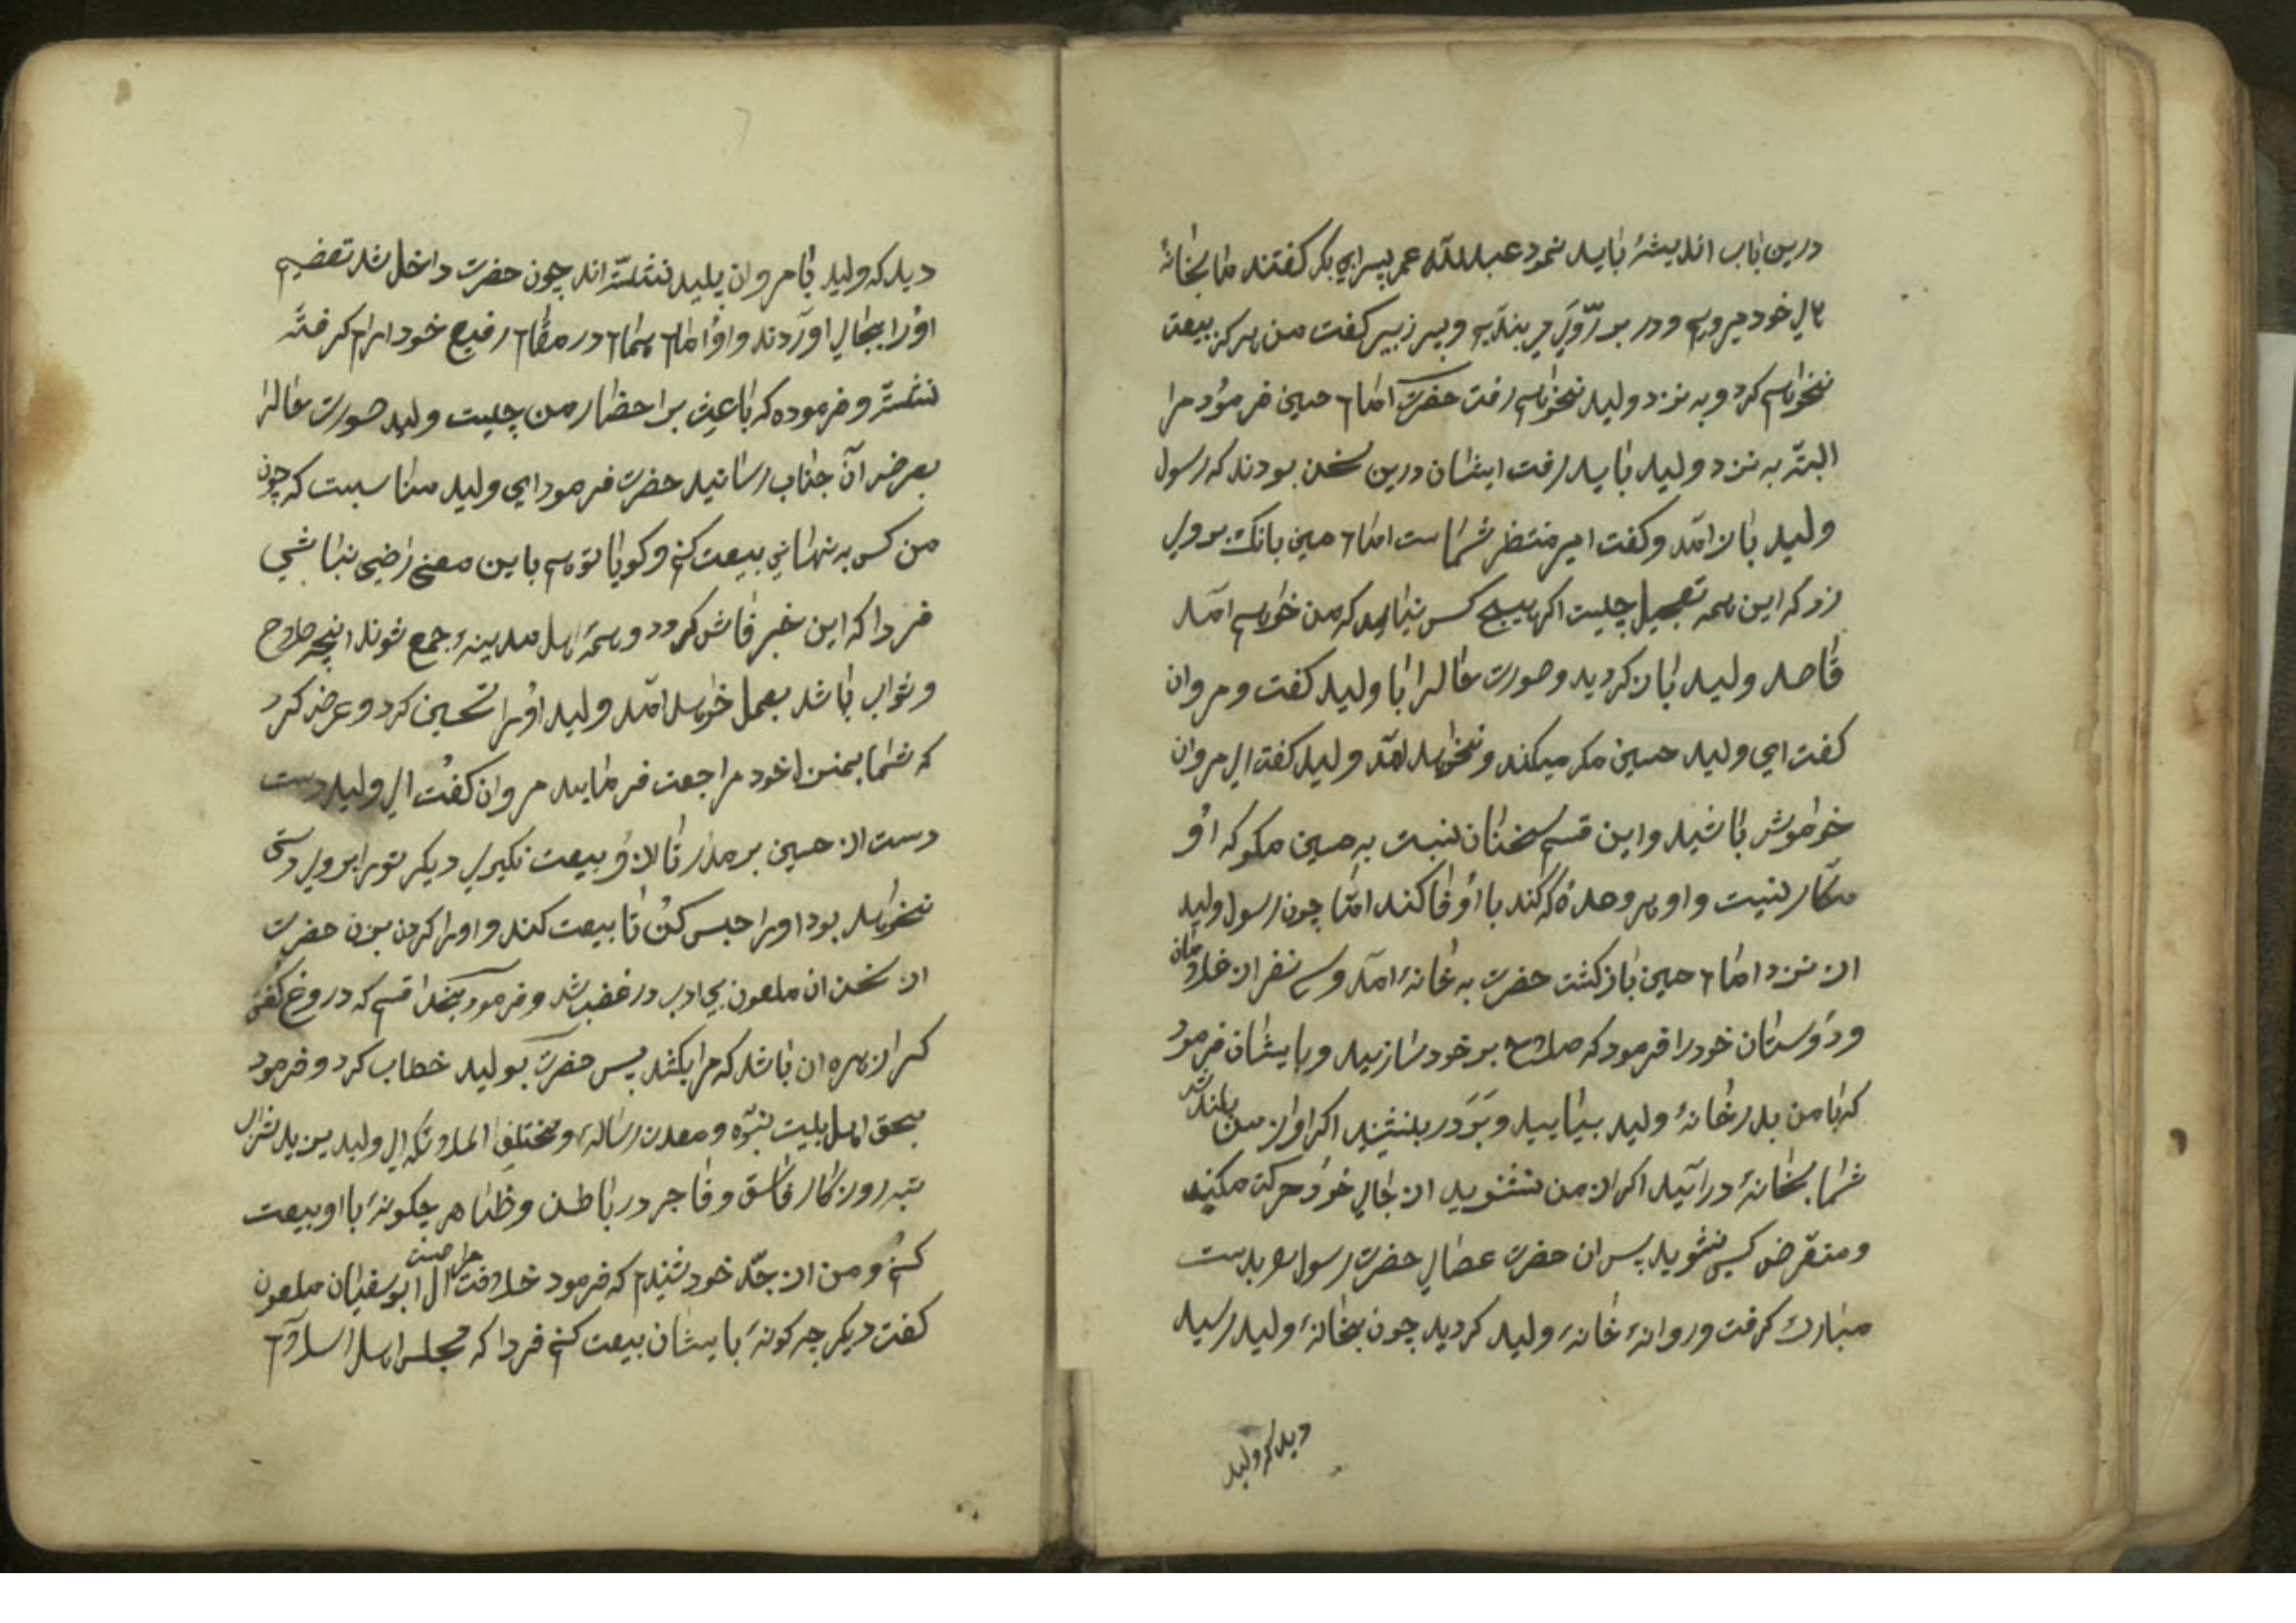 درین باب اندیشهٔ باید نمود عبدالله عمر پسر ابی بکر گفتند ما بخانهٔ
خود میرویم و در بر روی می بندیم و پسر زبیر گفت من هرگز بیعت
نخواهم کرد و به نزد ولید نخواهم رفت حضرت امام حسین فرمود مرا
البته به نزد ولید باید رفت ایشان درین سخن بودند که رسول
ولید باز آمد و گفت امیر منتظر شماست امام حسین بانک بر وی
زد که این همه تعجیل چیست اگر هیچ کس نیاید که من خواهم آمد
قاصد ولید باز کردید و صورت حالرا با ولید کفت و مروان
کفت ای ولید حسین مکر میکند و نخواهد آمد ولید کفت ای مروان
خواموش باشید و این قسم سخنان نسبت به حسین مکو که او
مکار نیست و او هر وعدهٔ که کند با او وفا کند امّا چون رسول ولید
از نزد امام حسین باز کشت حضرت به خانهٔ آمد و سی نفر از غلامان
و دوستان خود را فرمود که صلاح بر خود سازید و بایشان فرمود
که با من بدر خانهٔ ولید بیایید و بر در بنشینید اکر آواز من بلند شد
شما بخانهٔ درآیید اکر از من نشنوید از جای خود حرکت مکنید
و متعرض کسی نشوید پس ان حضرت عصای حضرت رسول بدست
مبارک کرفت و روانهٔ خانهٔ ولید کردید چون بخانهٔ ولید رسید
دید که ولید
دید که ولید با مروان پلید نشسته اند چون حضرت داخل شد تعضیم
او را بجای آوردند و او امام همام در مقام رفیع خود آرام کرفته
نشسته و فرموده که باعث بر احضار من چیست ولید صورت حالرا
بعرض آن جناب رسانید حضرت فرمود ای ولید مناسبست که چون
من کس به نهانی بیعت کنم و کویا تو هم باین معنی راضی نباشی
فردا که این خبر فاش کردد و همهٔ اهل مدینهٔ جمع شوند انچه صلاح
و ثواب باشد بعمل خواهد آمد ولید او را تحسین کرد و عرض کرد
که شما بمنزل خود مراجعت فرمایید مروان کفت ای ولید دست
دست از حسین بر مدار تا ازو بیعت نکیری دیکر تو را بر وی دستی
نخواهد بود او را حبس کن تا بیعت کند و او را کردن بزن حضرت
از سخن ان ملعون بی ادب در غضب شد و فرمود بخدا قسم که دروغ کفتی
کرا زهره ان باشد که مرا بکشد پس حضرت بولید خطاب کرد و فرمود
بحق اهل بیت نبوّه و معدن رسالهٔ و مختلف الملائکه ای ولید یزید شراب
تبه روزکار فاسق و فاجر در باطن و ظاهر چکونهٔ با او بیعت
کنم و من از جدّ خود شنیدم که فرمود خلافت آل ابوسفیان حرام است ملعون
کفت دیکر چه کونهٔ بایشان بیعت کنم فردا که مجلس اهل اسلام